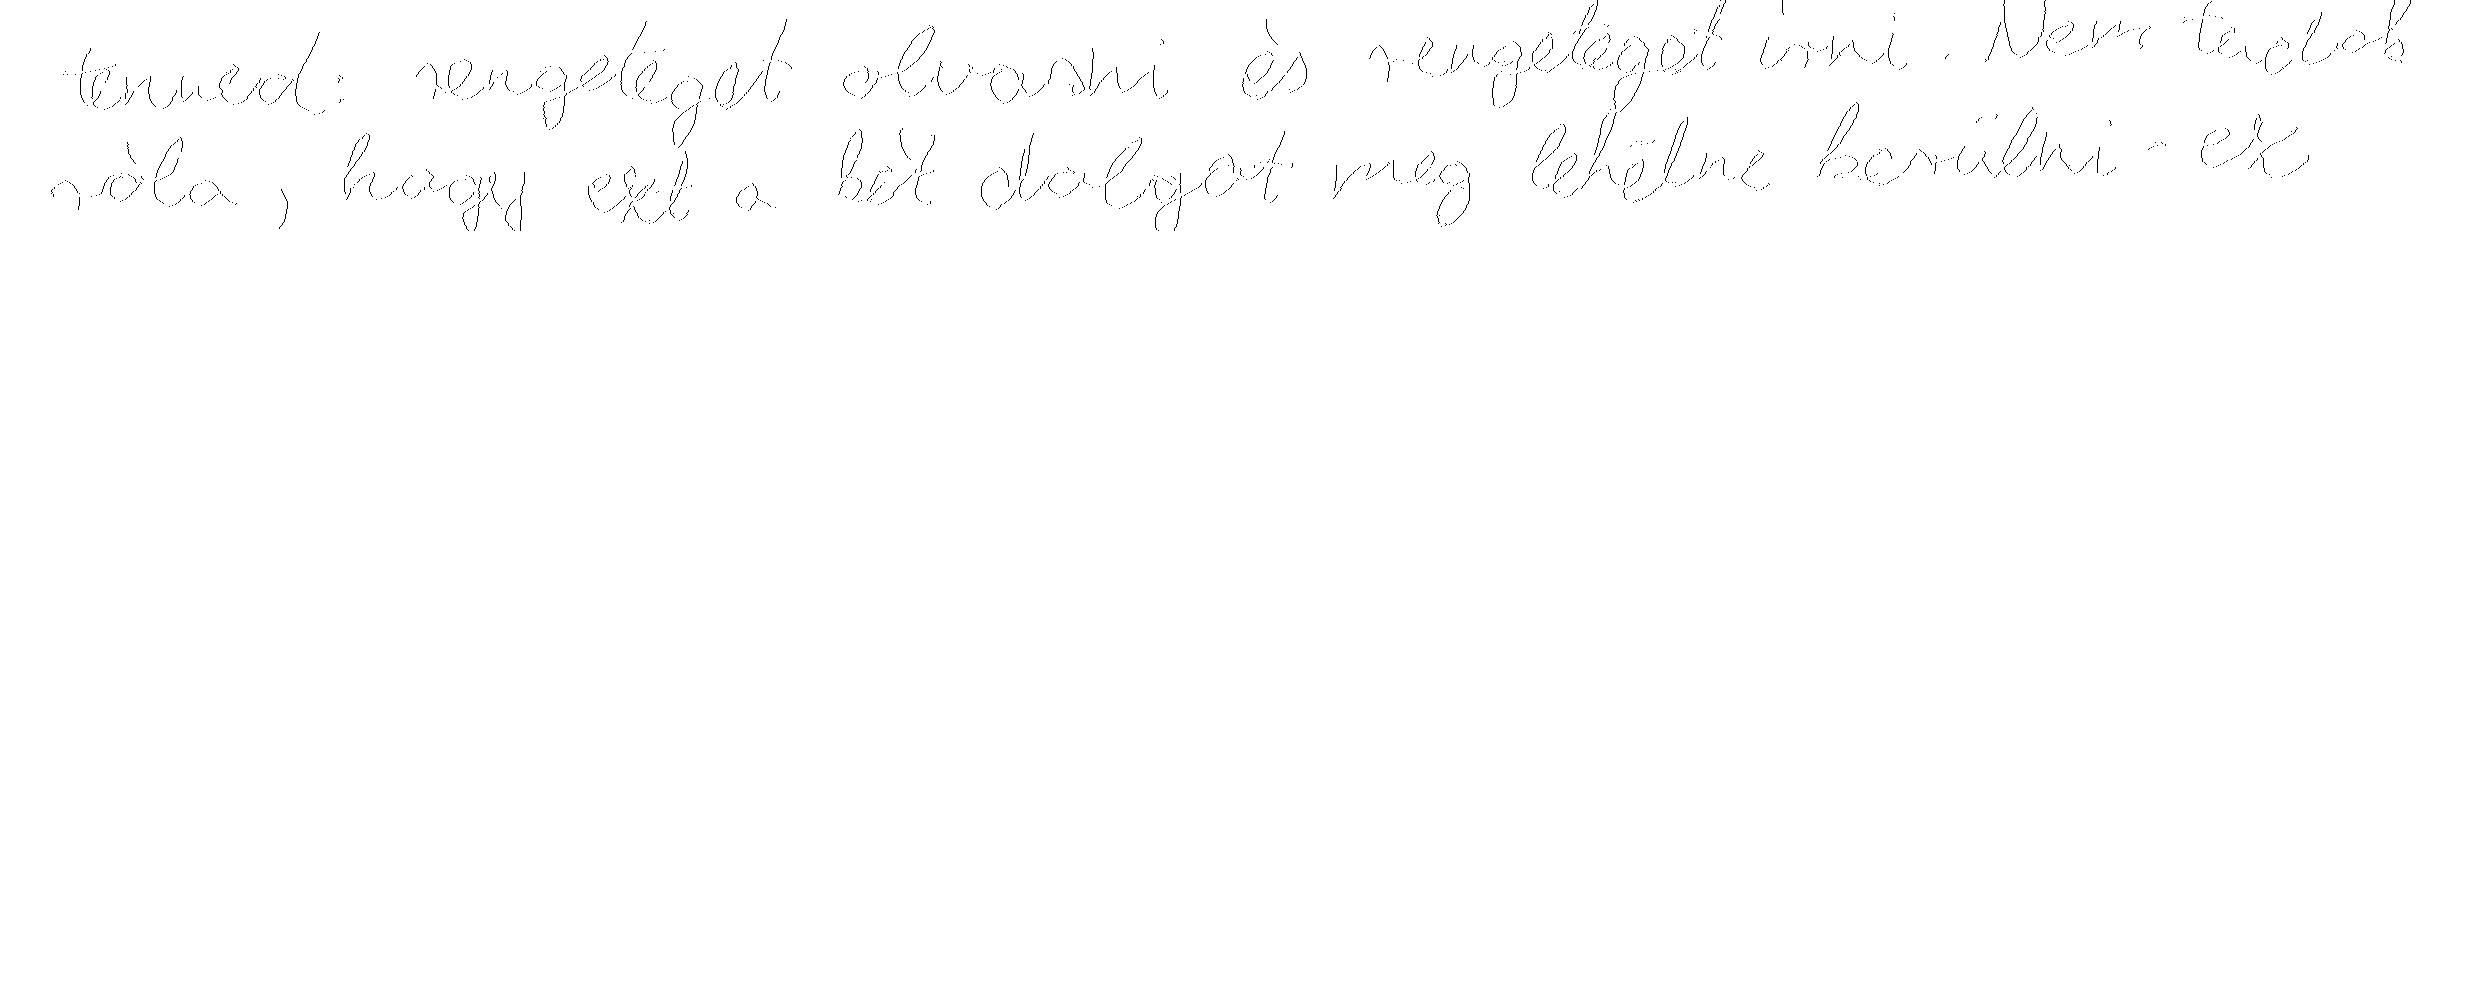 tenned: rengeteget olvasni és rengeteget írni. Nem tudok
róla, hogy ezt a két dolgot meg lehetne kerülni - ez